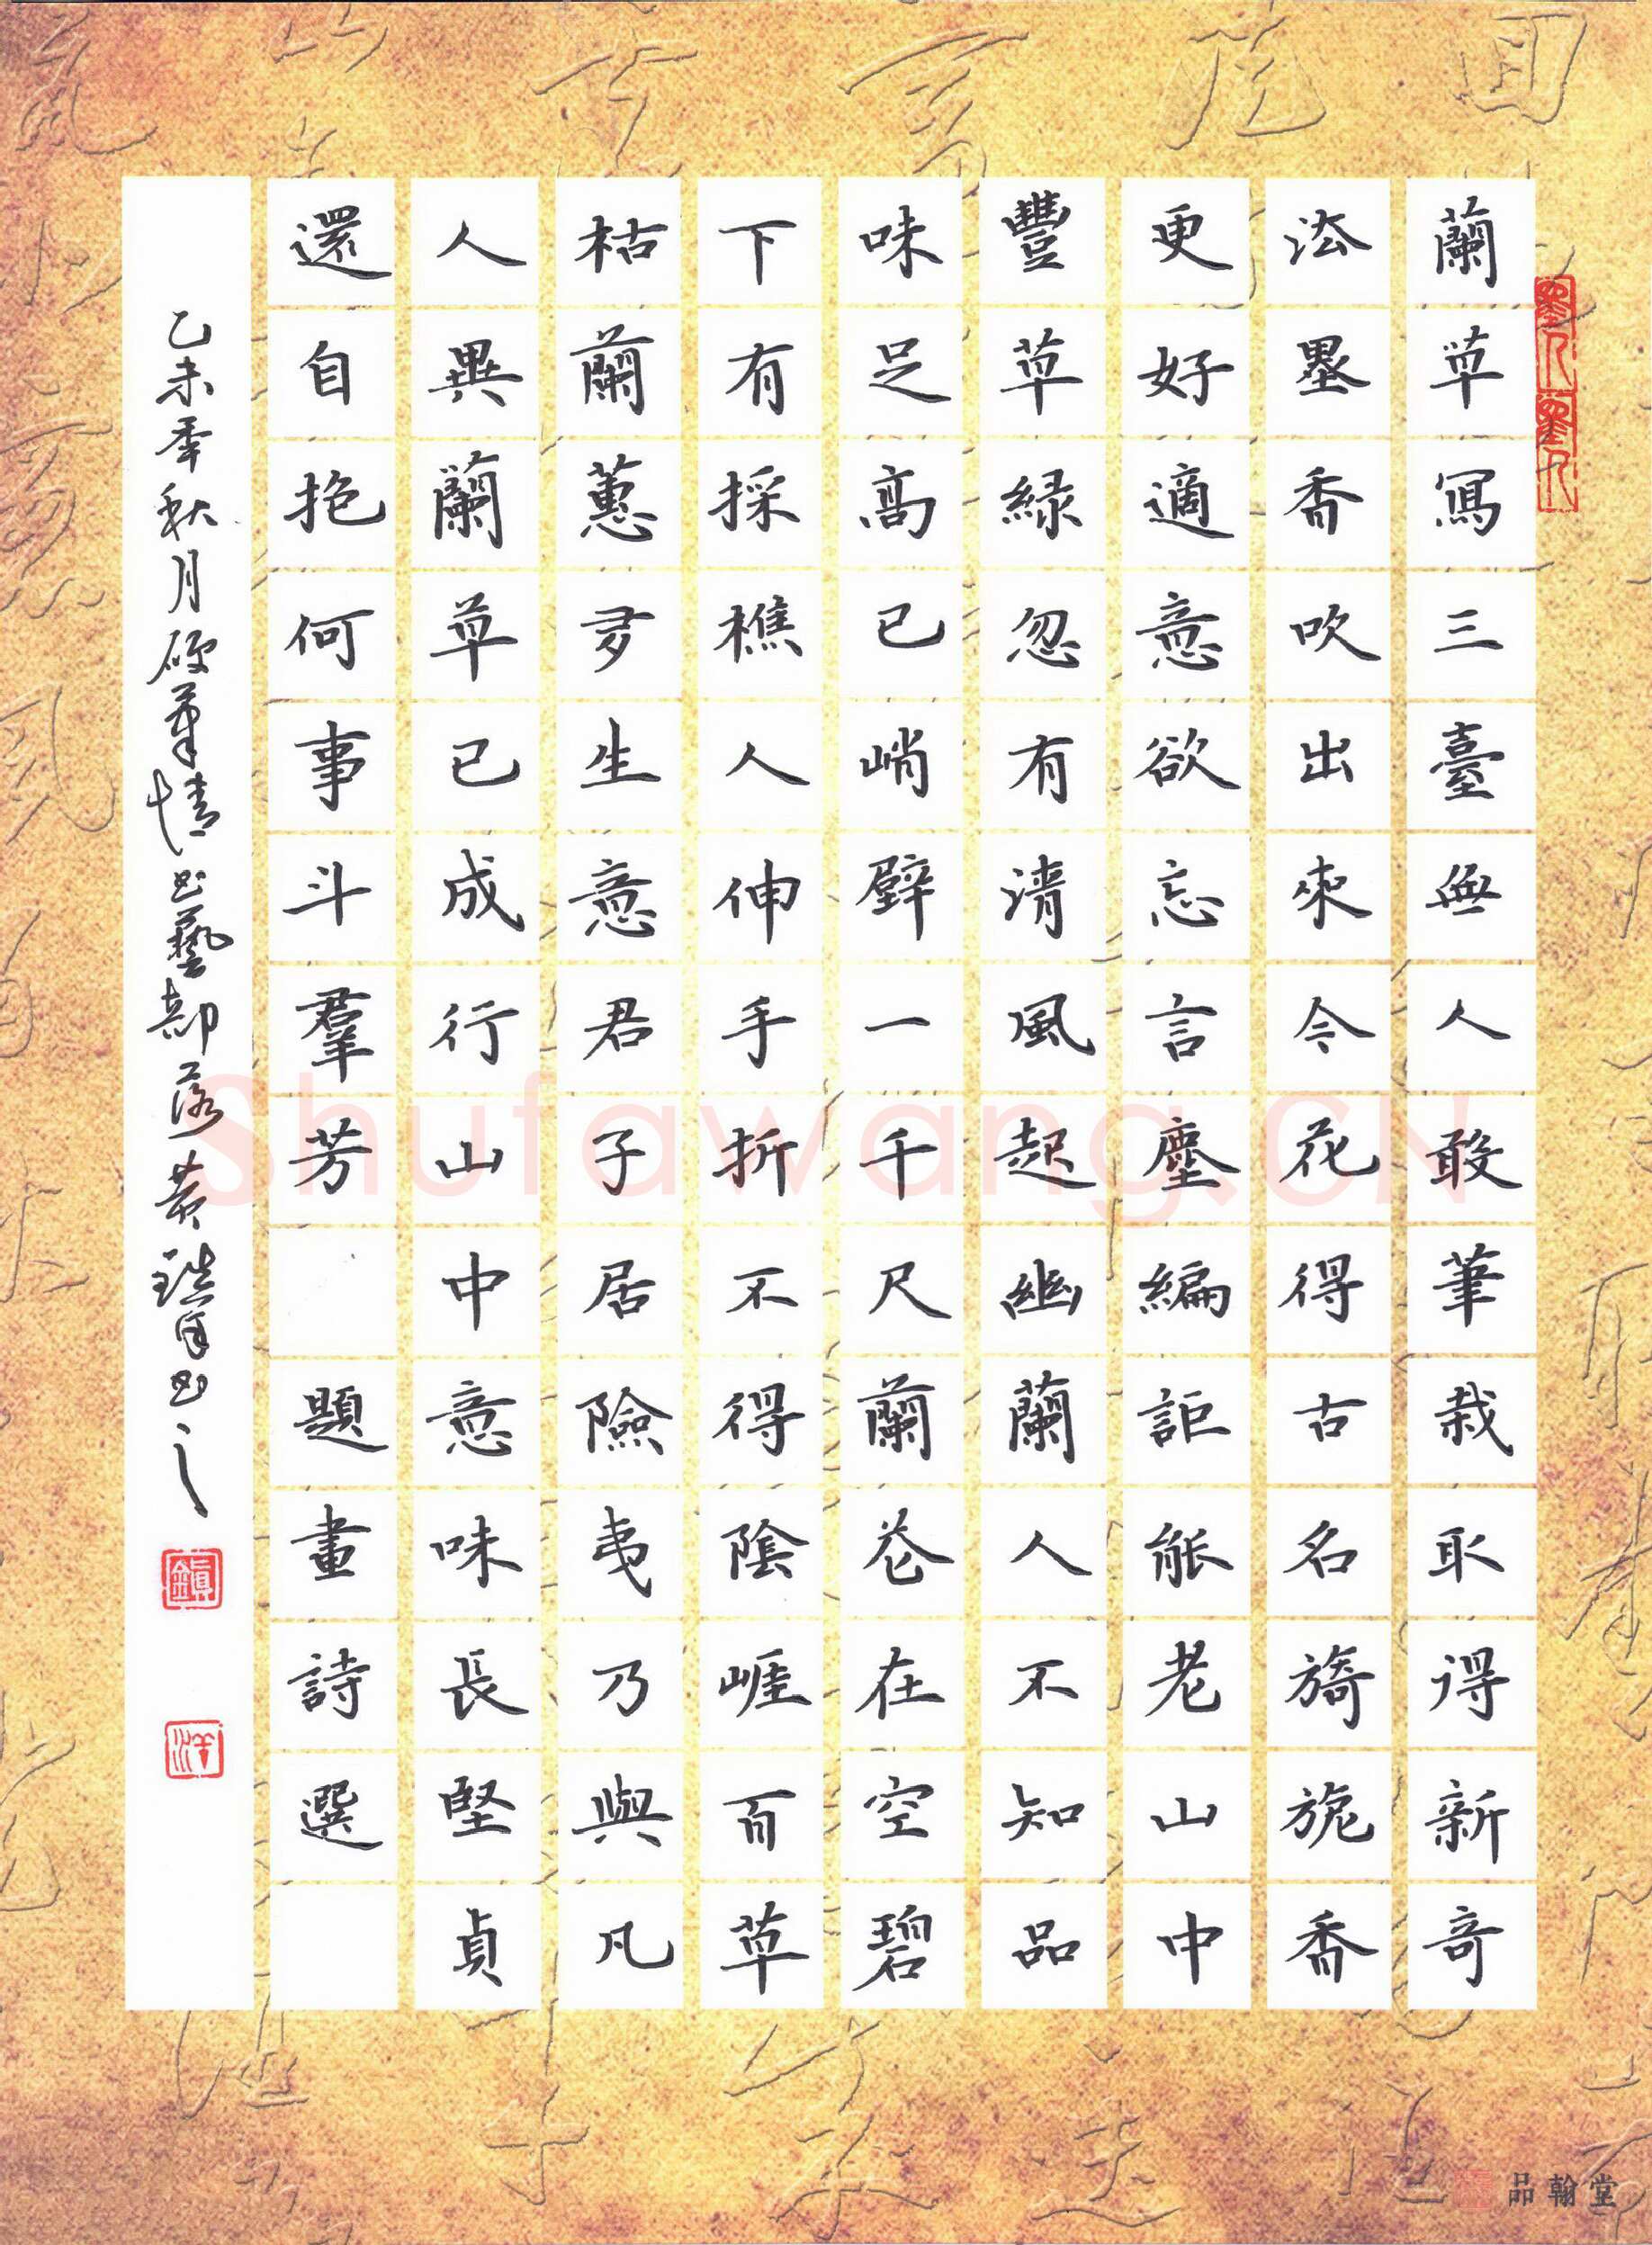 蘭草寫三臺無人敢筆栽取得新奇
法墨香吹出來令花得古名旖旎香
更好適意欲忘言塵編詎能老山中
豐草綠忽有清風起幽蘭人不知品
味足高已峭壁一千尺蘭花在空碧
下有採樵人伸手折不得陰崖百草
枯蘭蕙多生意君子居險夷乃與凡
人異蘭草已成行山中意味長堅貞
還自抱何事斗羣芳 題畫詩選
乙未年秋月硬筆情書藝部落黃鎮洋書之
鎮
洋
Shufawang.CN
品翰堂